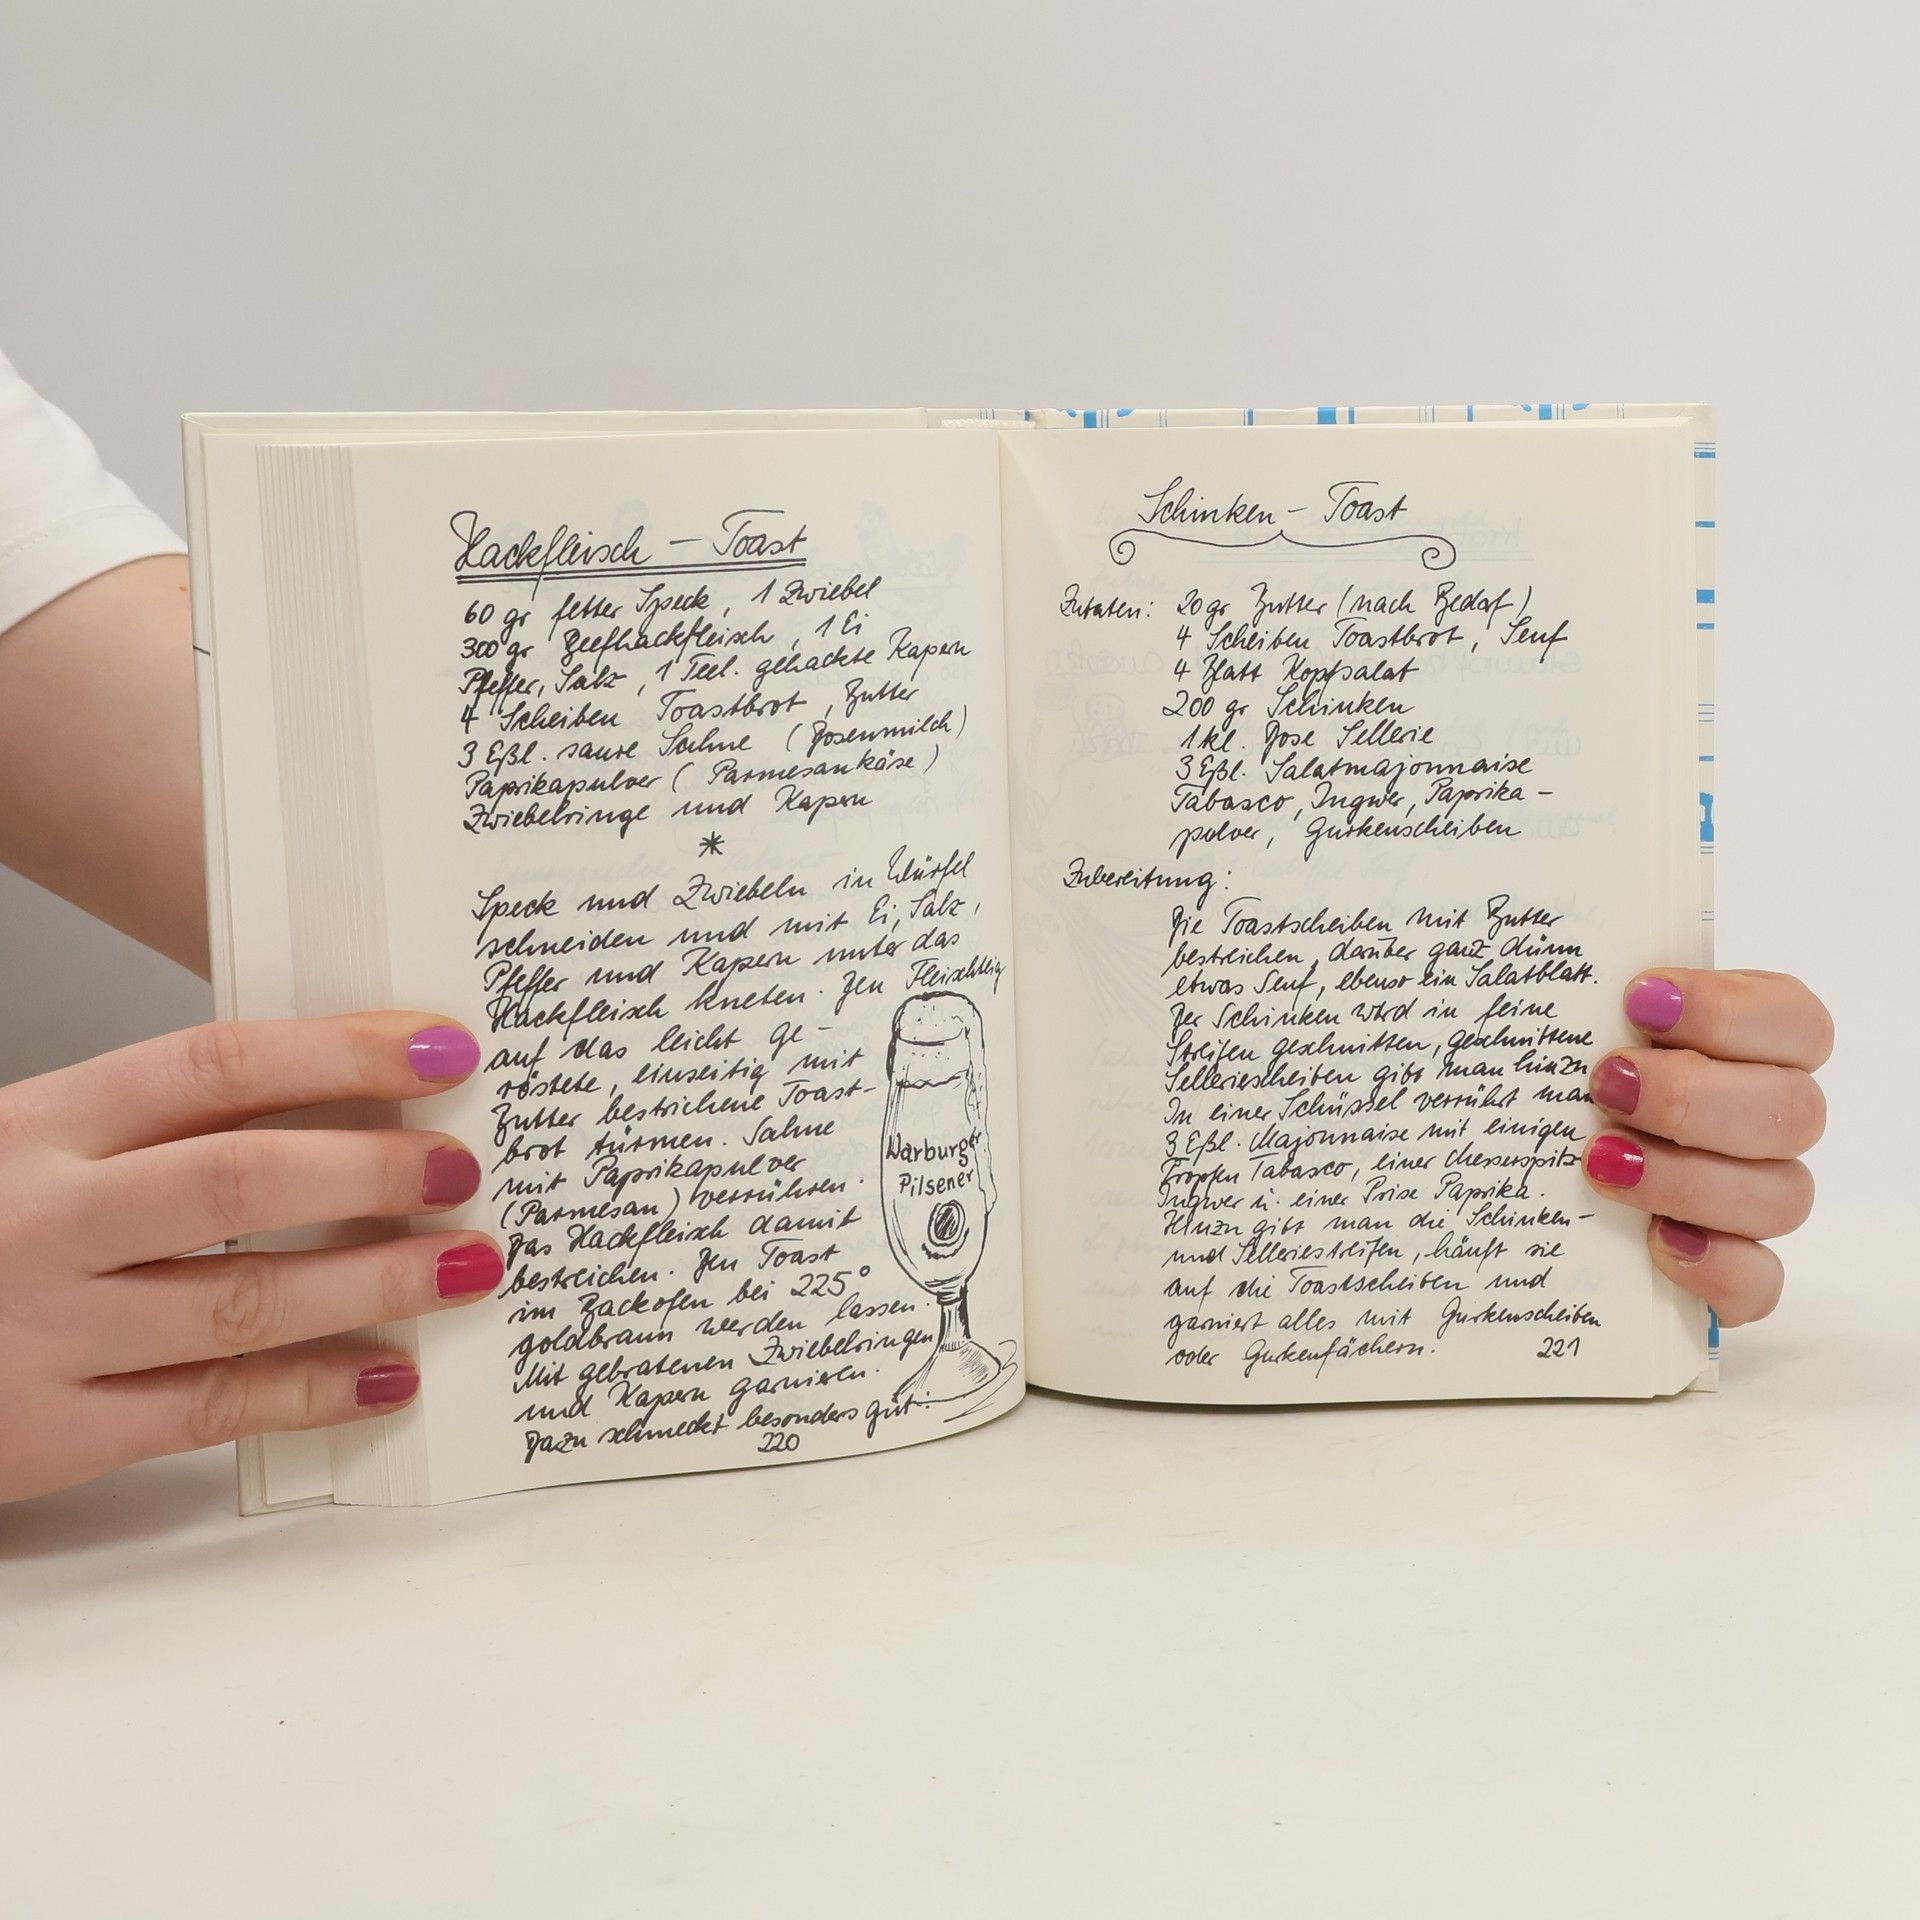 Hackfleisch - Toast
60 gr fetter Speck, 1 Zwiebel
300 gr Beefhackfleisch, 1 Ei
Pfeffer, Salz, 1 Teel. gehackte Kapern
4 Scheiben Toastbrot, Butter
3 Eßl. saure Sahne (Dosenmilch)
Paprikapulver (Parmesankäse)
Zwiebelringe und Kapern
*
Speck und Zwiebeln in Würfel
schneiden und mit Ei, Salz,
Pfeffer und Kapern unter das
Hackfleisch kneten. Den Fleischteig
auf das leicht ge-
röstete, einseitig mit
Butter bestrichene Toast-
brot türmen. Sahne
mit Paprikapulver
(Parmesan) verrühren.
Das Hackfleisch damit
bestreichen. Den Toast
im Backofen bei 225°
goldbraun werden lassen.
Mit gebratenen Zwiebelringen
und Kapern garnieren.
Dazu schmeckt besonders gut:
220
Warburger
Pilsener
Schinken - Toast
Zutaten: 20 gr Butter (nach Bedarf)
4 Scheiben Toastbrot, Senf
4 Blatt Kopfsalat
200 gr Schinken
1 kl. Dose Sellerie
3 Eßl. Salatmajonnaise
Tabasco, Ingwer, Paprika-
pulver, Gurkenscheiben
Zubereitung:
Die Toastscheiben mit Butter
bestreichen, darüber ganz dünn
etwas Senf, ebenso ein Salatblatt.
Der Schinken wird in feine
Streifen geschnitten, geschnittene
Selleriescheiben gibt man hinzu
In einer Schüssel verrührt man
3 Eßl. Majonnaise mit einigen
Tropfen Tabasco, einer Messerspitze
Ingwer u. einer Prise Paprika.
Hinzu gibt man die Schinken-
und Selleriestreifen, häuft sie
auf die Toastscheiben und
garniert alles mit Gurkenscheiben
oder Gurkenfächern.
221